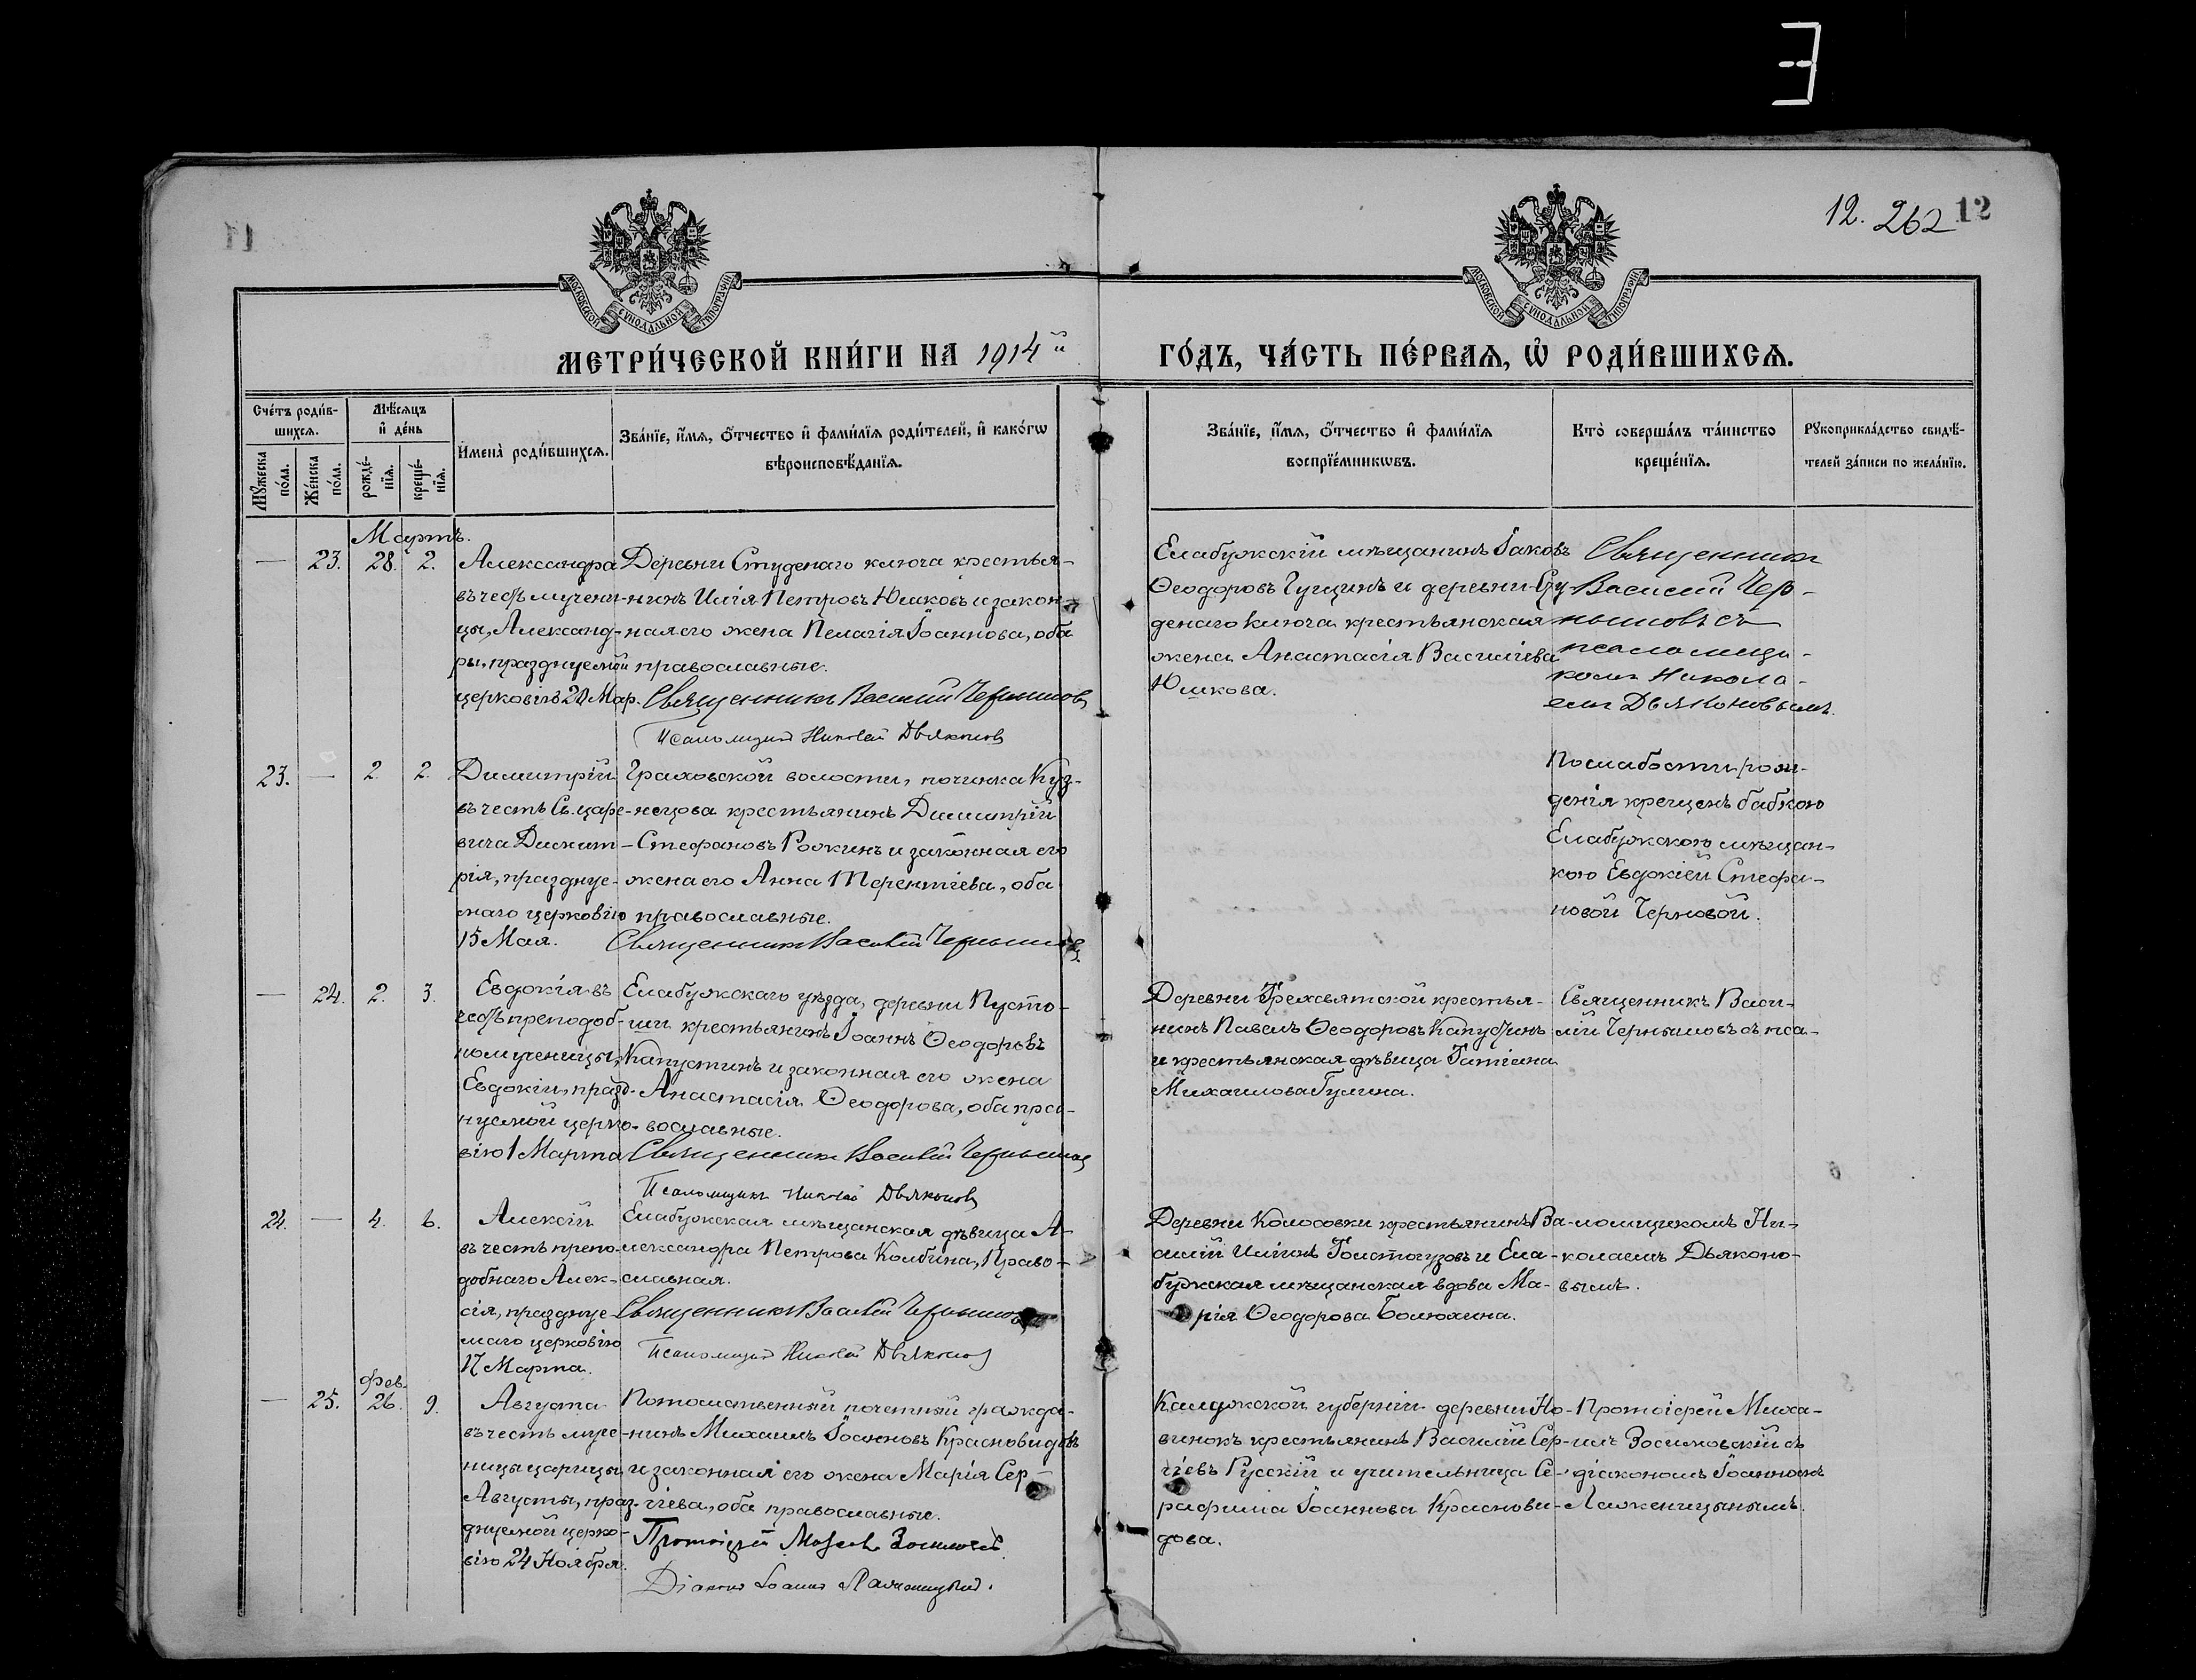 12. 262 12
11
МОСКОВСКОЙ СѴНОДАЛЬНОЙ ТИПОГРАФІИ
МОСКОВСКОЙ СѴНОДАЛЬНОЙ ТИПОГРАФІИ
МЕТРИ́ЧЕСКОЙ КНИ́ГИ НА 1914й ГО́ДЪ, ЧА́СТЬ ПЕ́РВАЯ, Ѡ҆ РОДИ́ВШИХСЯ.
Сче́тъ роди́в-
шихся.
Мꙋ́жеска по́ла.
Же́нска по́ла.
Мѣ́сяцъ
и҆ де́нь
рожде́-
нїя.
креще́-
нїя.
И҆мена̀ роди́вшихся.
Зва́нїе, и҆́мя, ѻ҆́тчество и҆ фами́лїя роди́телей, и҆ како́гѡ
вѣроисповѣ́данїя.
Зва́нїе, и҆́мя, ѻ҆́тчество и҆ фами́лїя
воспрїе́мникѡвъ.
Кто̀ соверша́лъ та́инство
креще́нїя.
Рꙋкоприкла́дство свидѣ́-
телей за́писи по жела́нїю.
Мартъ.
— 23. 28. 2.
Александра
въ честь мучени-
цы, Александ-
ры, празднуемой
церковію 20 Мар.
Деревни Студенаго ключа крестья-
нинъ Илія Петровъ Юшковъ и закон-
ная его жена Пелагія Іоаннова, оба
православные.
Священникъ Василий Чернышов
Псаломщикъ Николай Дьяконов
Елабужскій мѣщанинъ Іаковъ
Ѳеодоровъ Гущинъ и деревни Сту-
денаго ключа крестьянская
жена Анастасія Василіева
Юшкова.
Священникъ
Василий Чер-
нышовъ съ
псаломщи-
комъ Никола-
емъ Дьяконовымъ.
23. — 2. 2.
Димитрій
въ честь Св. царе-
вича Димит-
рія, праздну-
маго церковію
15 Мая.
Граховской волости, починка Куз-
нецова крестьянинъ Димитрій
Стефановъ Рожкинъ и законная его
жена его Анна Терентіева, оба
православные.
Священникъ Василий Чернышов
По слабости рож-
денія крещенъ бабкою
Елабужскою мѣщан-
кою Евдокіей Стефа-
новой Черновой.
— 24. 2. 3.
Евдокія въ
честь преподоб-
номученицы,
Евдокіи, празд-
нуемой церко-
вію 1 Марта
Елабужскаго уѣзда, деревни Пусто-
ши крестьянинъ Іоаннъ Ѳеодоровъ
Капустинъ и законная его жена
Анастасія Ѳеодорова, оба пра-
вославные.
Священникъ Василий Чернышов
Псаломщикъ Николай Дьяконов
Деревни Трехсвятской крестья-
нинъ Павелъ Ѳеодоровъ Капустинъ
и крестьянская дѣвица Татіана
Михаилова Гулина.
Священникъ Васи-
лій Чернышовъ съ пса-
24. — 4. 6.
Алексій
въ честь препо-
добнаго Алек-
сія, праздну-
маго церковію
17 Марта.
Елабужская мѣщанская дѣвица А-
лександра Петрова Колбина, Право-
славная.
Священникъ Василий Чернышов
Псаломщикъ Николай Дьяконов
Деревни Колосовки крестьянинъ Ва-
силій Иліинъ Толстогузовъ и Ела-
бужская мѣщанская вдова Ма-
рія Ѳеодорова Болюхина.
ломщикомъ Ни-
колаемъ Дьяконо-
вымъ.
Фев.
— 25. 26. 9.
Августа
въ честь муче-
ницы царицы
Августы, праз-
днуемой церко-
вію 24 Ноября.
Потомственный почетный гражда-
нинъ Михаилъ Іоанновъ Красновидовъ
и законная его жена Марія Сер-
гіева, оба православные.
Протоіерей Михаил Зосимовскій
Діаконъ Іоаннъ
Калужской губерніи деревни Но-
винокъ крестьянинъ Василій Сер-
гіевъ Русскій и учительница Се-
рафима Іоаннова Краснови-
дова.
Протоіерей Миха-
илъ Зосимовскій съ
діакономъ Іоанномъ